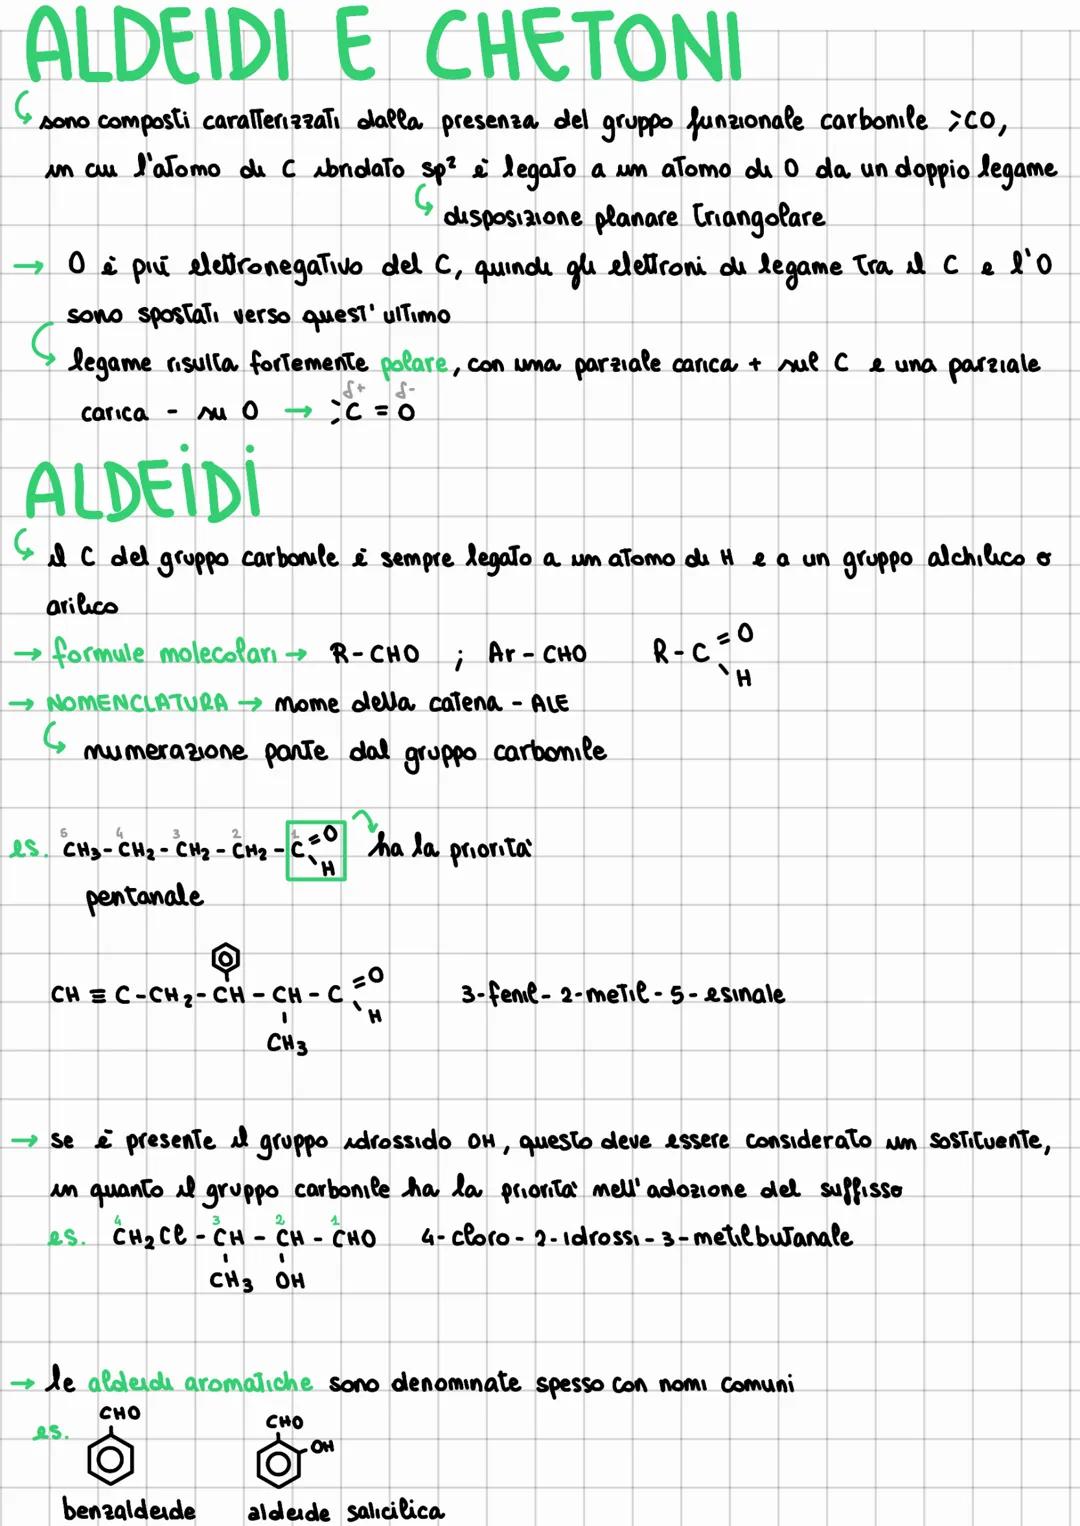 ALDEIDI E CHETONI
sono composti caratterizzati dalla presenza del gruppo funzionale carbonile >CO,
in cui l'atomo di C ibridato sp² è legato a un atomo di O da un doppio legame
disposizione planare triangolare
→ O è più elettronegativo del C, quindi gli elettroni di legame tra il C e l'O
sono spostati verso quest'ultimo
legame risulta fortemente polare, con una parziale carica + sul C e una parziale
δ+ δ-
carica - su O → >C = O
ALDEIDI
il C del gruppo carbonile è sempre legato a un atomo di H e a un gruppo alchilico o
arilico
→ formule molecolari → R-CHO ; Ar-CHO R-C=O
H
→ NOMENCLATURA → nome della catena - ALE
numerazione parte dal gruppo carbonile
5 4 3 2 1
es. CH₃-CH₂-CH₂-CH₂-C=O ha la priorità
H
pentanale
CH≡C-CH₂-CH-CH-C=O 3-fenil-2-metil-5-esinale
H
CH₃
→ se è presente il gruppo idrossido OH, questo deve essere considerato un sostituente,
in quanto il gruppo carbonile ha la priorità nell'adozione del suffisso
4 3 2 1
es. CH₂Cl-CH-CH-CHO 4-cloro-2-idrossi-3-metilbutanale
CH₃ OH
→ le aldeidi aromatiche sono denominate spesso con nomi comuni
CHO CHO
es. OH
benzaldeide aldeide salicilica